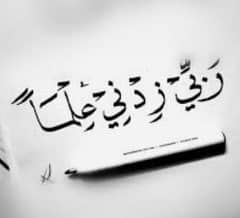 رَبِّيِّ زِدْنِيْ عِلْمَاً